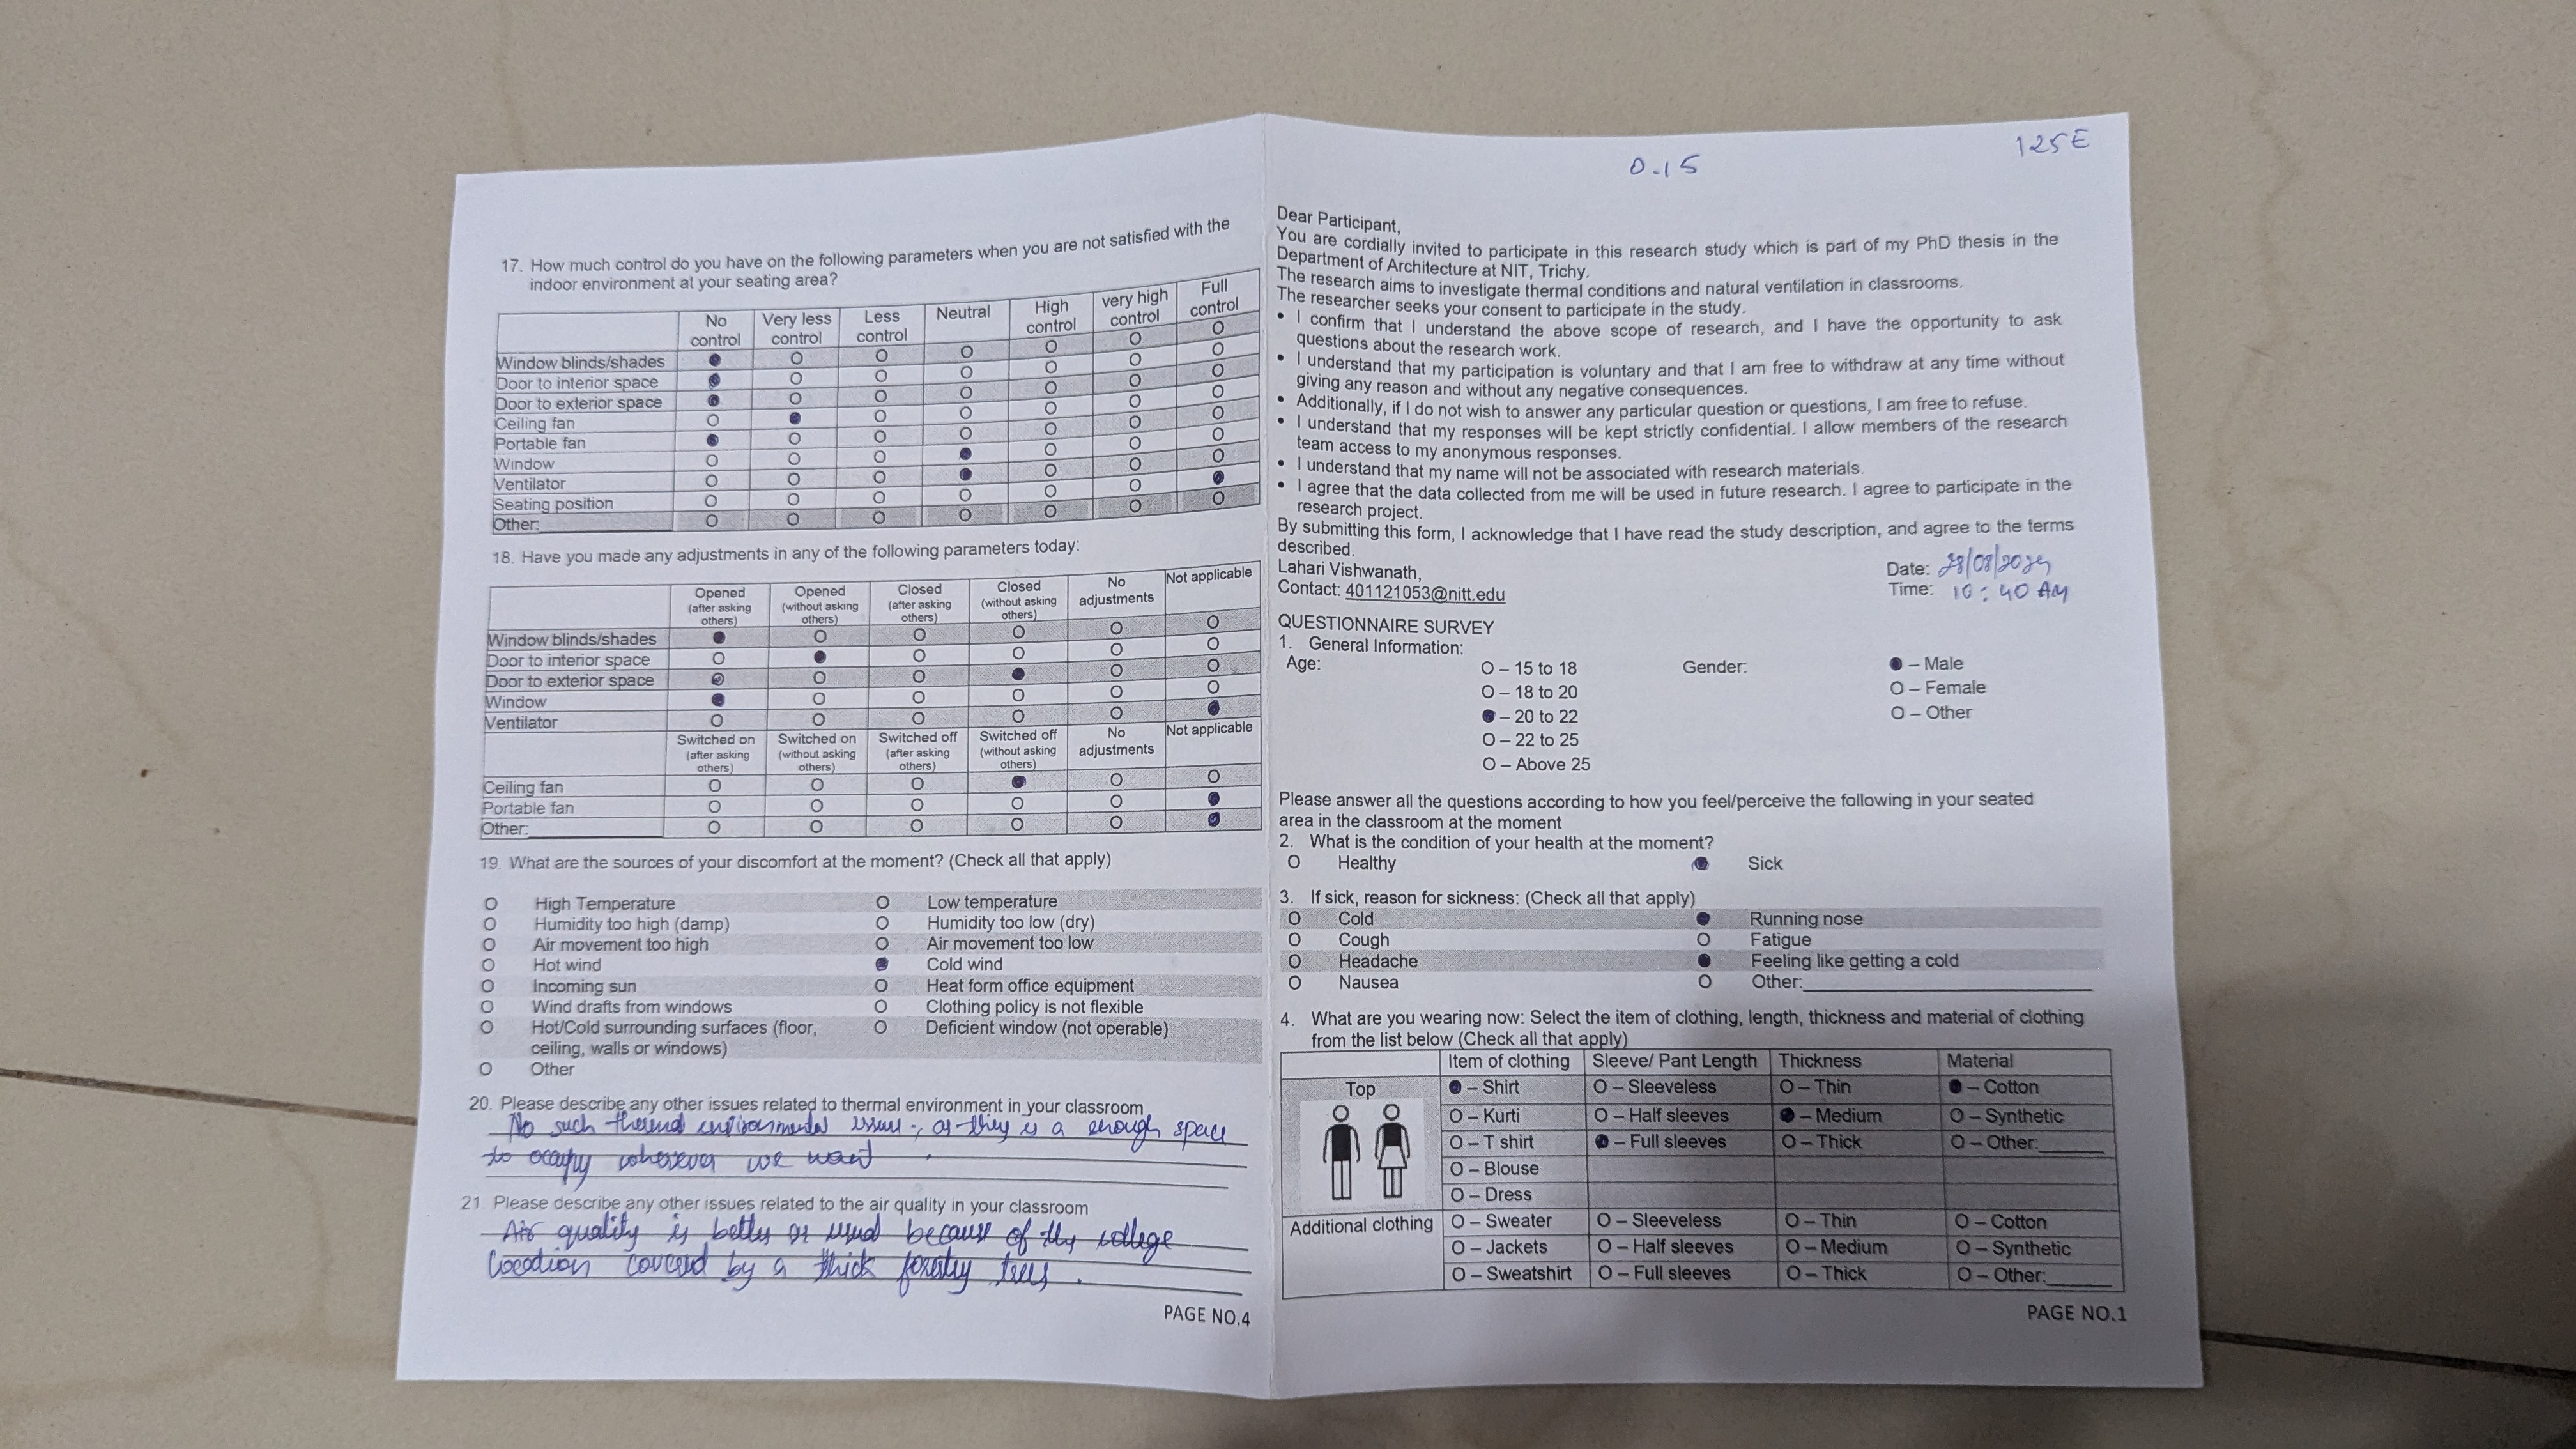 17. How much control do you have on the following parameters when you are not satisfied with the
indoor environment at your seating area?
No control Very less control Less control Neutral High control very high control Full control
Window blinds/shades ● O O O O O O
Door to interior space ● O O O O O O
Door to exterior space ● O O O O O O
Ceiling fan O ● O O O O O
Portable fan ● O O O O O O
Window O O O ● O O O
Ventilator O O O ● O O O
Seating position O O O O O O ●
Other: O O O O O O O
18. Have you made any adjustments in any of the following parameters today:
Opened (after asking others) Opened (without asking others) Closed (after asking others) Closed (without asking others) No adjustments Not applicable
Window blinds/shades ● O O O O O
Door to interior space O ● O O O O
Door to exterior space O O O ● O O
Window ● O O O O O
Ventilator O O O O O ●
Switched on (after asking others) Switched on (without asking others) Switched off (after asking others) Switched off (without asking others) No adjustments Not applicable
Ceiling fan O O O ● O O
Portable fan O O O O O ●
Other: O O O O O ●
19. What are the sources of your discomfort at the moment? (Check all that apply)
O High Temperature O Low temperature
O Humidity too high (damp) O Humidity too low (dry)
O Air movement too high O Air movement too low
O Hot wind ● Cold wind
O Incoming sun O Heat form office equipment
O Wind drafts from windows O Clothing policy is not flexible
O Hot/Cold surrounding surfaces (floor, O Deficient window (not operable)
ceiling, walls or windows)
O Other
20. Please describe any other issues related to thermal environment in your classroom
No such thermal environmental issue, as they is a enough space
to occupy wherever we want.
21. Please describe any other issues related to the air quality in your classroom
Air quality is because of the college
location covered by a thick trees.
PAGE NO.4
0.15
125E
Dear Participant,
You are cordially invited to participate in this research study which is part of my PhD thesis in the
Department of Architecture at NIT, Trichy.
The research aims to investigate thermal conditions and natural ventilation in classrooms.
The researcher seeks your consent to participate in the study.
• I confirm that I understand the above scope of research, and I have the opportunity to ask
questions about the research work.
• I understand that my participation is voluntary and that I am free to withdraw at any time without
giving any reason and without any negative consequences.
• Additionally, if I do not wish to answer any particular question or questions, I am free to refuse.
• I understand that my responses will be kept strictly confidential. I allow members of the research
team access to my anonymous responses.
• I understand that my name will not be associated with research materials.
• I agree that the data collected from me will be used in future research. I agree to participate in the
research project.
By submitting this form, I acknowledge that I have read the study description, and agree to the terms
described.
Lahari Vishwanath,
Contact: 401121053@nitt.edu
Date:
Time: 10:40 AM
QUESTIONNAIRE SURVEY
1. General Information:
Age: O – 15 to 18 Gender: ● – Male
O – 18 to 20 O – Female
● – 20 to 22 O – Other
O – 22 to 25
O – Above 25
Please answer all the questions according to how you feel/perceive the following in your seated
area in the classroom at the moment
2. What is the condition of your health at the moment?
O Healthy ● Sick
3. If sick, reason for sickness: (Check all that apply)
O Cold ● Running nose
O Cough O Fatigue
O Headache ● Feeling like getting a cold
O Nausea O Other:
4. What are you wearing now: Select the item of clothing, length, thickness and material of clothing
from the list below (Check all that apply)
Item of clothing Sleeve/ Pant Length Thickness Material
Top ● – Shirt O – Sleeveless O – Thin ● – Cotton
O – Kurti O – Half sleeves ● – Medium O – Synthetic
O – T shirt ● – Full sleeves O – Thick O – Other:
O – Blouse
O – Dress
Additional clothing O – Sweater O – Sleeveless O – Thin O – Cotton
O – Jackets O – Half sleeves O – Medium O – Synthetic
O – Sweatshirt O – Full sleeves O – Thick O – Other:
PAGE NO.1